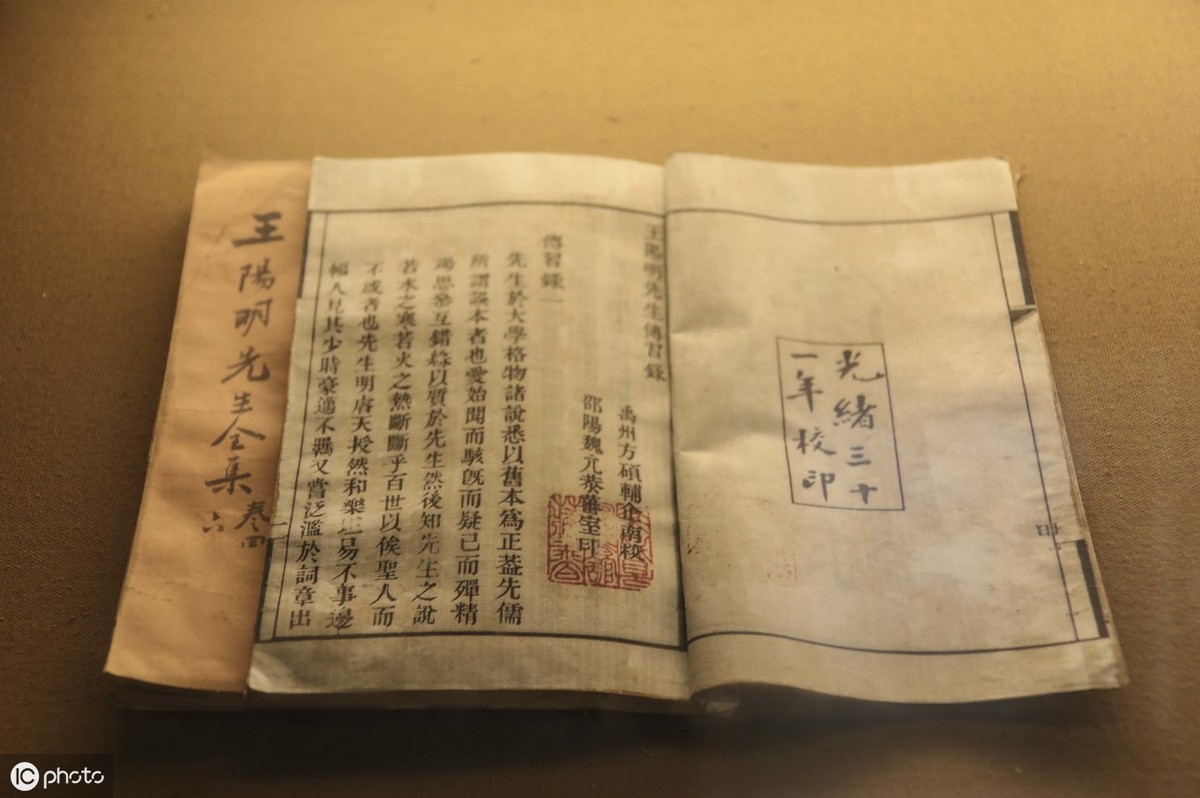 光緒三十
一年校印
王陽明先生傳習錄
禹州方碩輔企南校
邵陽魏允恭蕃室印
傳習錄一
先生於大學格物諸說悉以舊本爲正葢先儒
所謂誤本者也愛始聞而駭旣而疑已而殫精
竭思參互錯綜以質於先生然後知先生之說
若水之寒若火之熱斷斷乎百世以俟聖人而
不惑者也先生明睿天授然和樂坦易不事邊
幅人見其少時豪邁不羈又嘗泛濫於詞章出
王陽明先生全集
卷四
六
IC photo